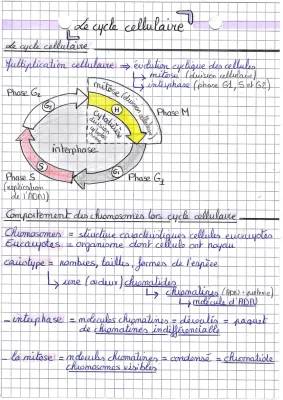 Le cycle cellulaire
Le cycle cellulaire
Multiplication cellulaire ⇒ évolution cyclique des cellules
↳ mitose (division cellulaire)
↳ interphase (phase G1, S et G2)
Phase G2
mitose (division cellulaire)
G2
M
cytodiérèse
division
Phase M
interphase
S
G1
Phase S
(réplication
de l'ADN)
Phase G1
Comportement des chromosomes lors cycle cellulaire
Chromosomes = structure caractéristiques cellules eucaryotes
Eucaryotes = organisme dont cellules ont noyau
caryotype = nombres, tailles, formes de l'espèce
↳ une (ou deux) chromatides
↳ chromatines (ADN + protéine)
↳ molécule d'ADN
- interphase = molécules chromatines = déroulés = paquet
de chromatines indifférenciable
- la mitose = molécules chromatines = condensé = chromatide
chromosomes visibles